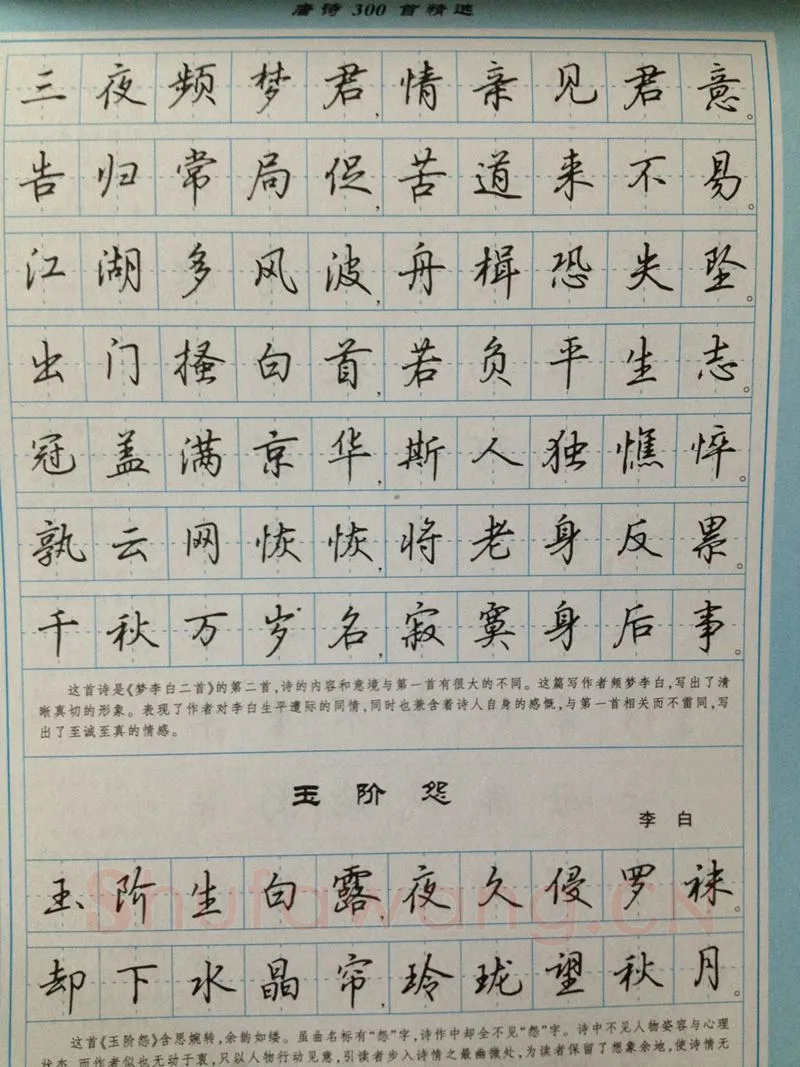 唐诗300首精选
三夜频梦君,情亲见君意。
告归常局促,苦道来不易。
江湖多风波,舟楫恐失坠。
出门搔白首,若负平生志。
冠盖满京华,斯人独憔悴。
孰云网恢恢,将老身反累。
千秋万岁名,寂寞身后事。
这首诗是《梦李白二首》的第二首,诗的内容和意境与第一首有很大的不同。这篇写作者频梦李白,写出了清
晰真切的形象。表现了作者对李白生平遭际的同情,同时也兼含着诗人自身的感慨,与第一首相关而不雷同,写
出了至诚至真的情感。
玉阶怨
李白
玉阶生白露,夜久侵罗袜。
却下水晶帘,玲珑望秋月。
Shufawang.CN
这首《玉阶怨》含思婉转,余韵如缕。虽曲名标有“怨”字,诗作中却全不见“怨”字。诗中不见人物姿容与心理
状态,而作者似也无动于衷,只以人物行动见意,引读者步入诗情之最幽微处,为读者保留了想象余地,使诗情无